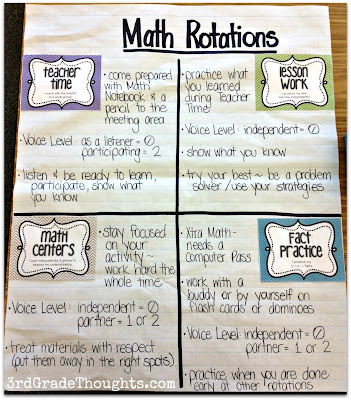 Math Rotations
teacher
time
• come prepared
with Math
Notebook & a
pencil to the
meeting area
• Voice Level: as a listener = 0
participating = 2
• listen & be ready to learn,
participate, show what
you know
• practice what
you learned
during Teacher
Time
lesson
work
• Voice Level: independent = 0
• show what you know
• try your best ~ be a problem
solver / use your strategies
math
centers
• stay focused
on your
activity ~
work hard the
whole time
• Voice Level: independent = 0
partner = 1 or 2
• treat materials with respect
(put them away in the right spots)
• Xtra Math -
needs a
Computer Pass
fact
practice
• work with a
buddy or by yourself on
flash cards or dominoes
• Voice Level: independent = 0
partner = 1 or 2
• practice when you are done
early at other rotations
3rdGradeThoughts.com